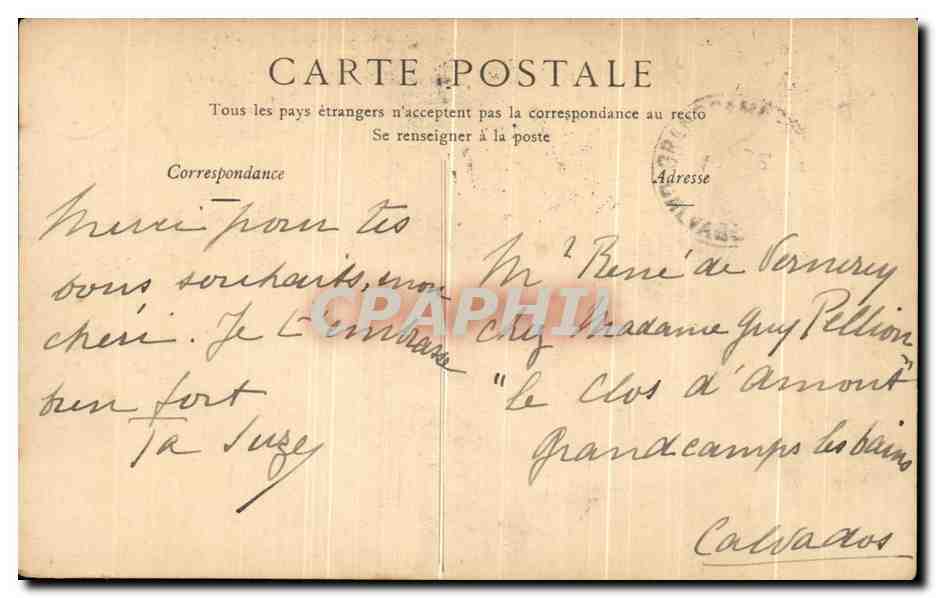 CARTE POSTALE
Tous les pays étrangers n'acceptent pas la correspondance au recto
Se renseigner à la poste
Correspondance
Merci pour tes
bons souhaits, mon
chéri. Je t'embrasse
bien fort
Ta Suzey
Adresse
Mr René de Vernerey
chez Madame Guy Pellion
"le Clos d'Amont"
Grandcamps les bains
Calvados
CPAPHIL
CALVADOS